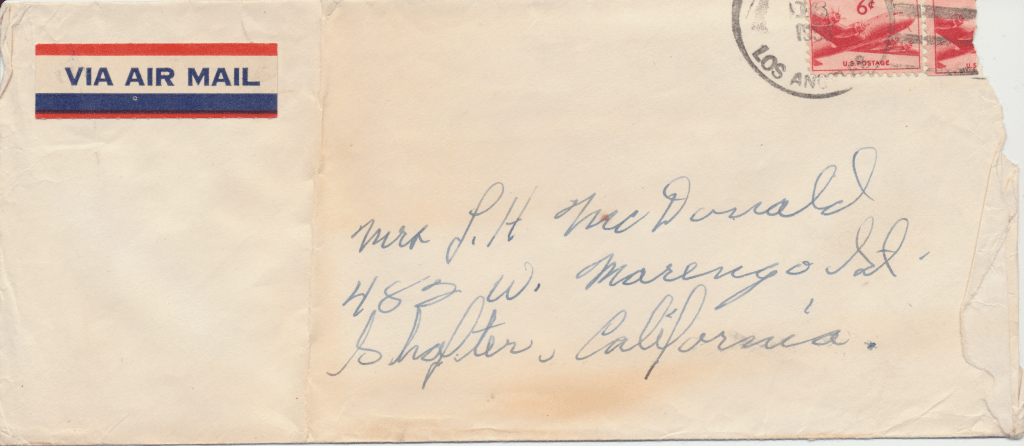 VIA AIR MAIL
6¢
U.S. POSTAGE
US
LOS ANG
Mrs L. H McDonald
482 W. Marengo St.
Shafter, California.